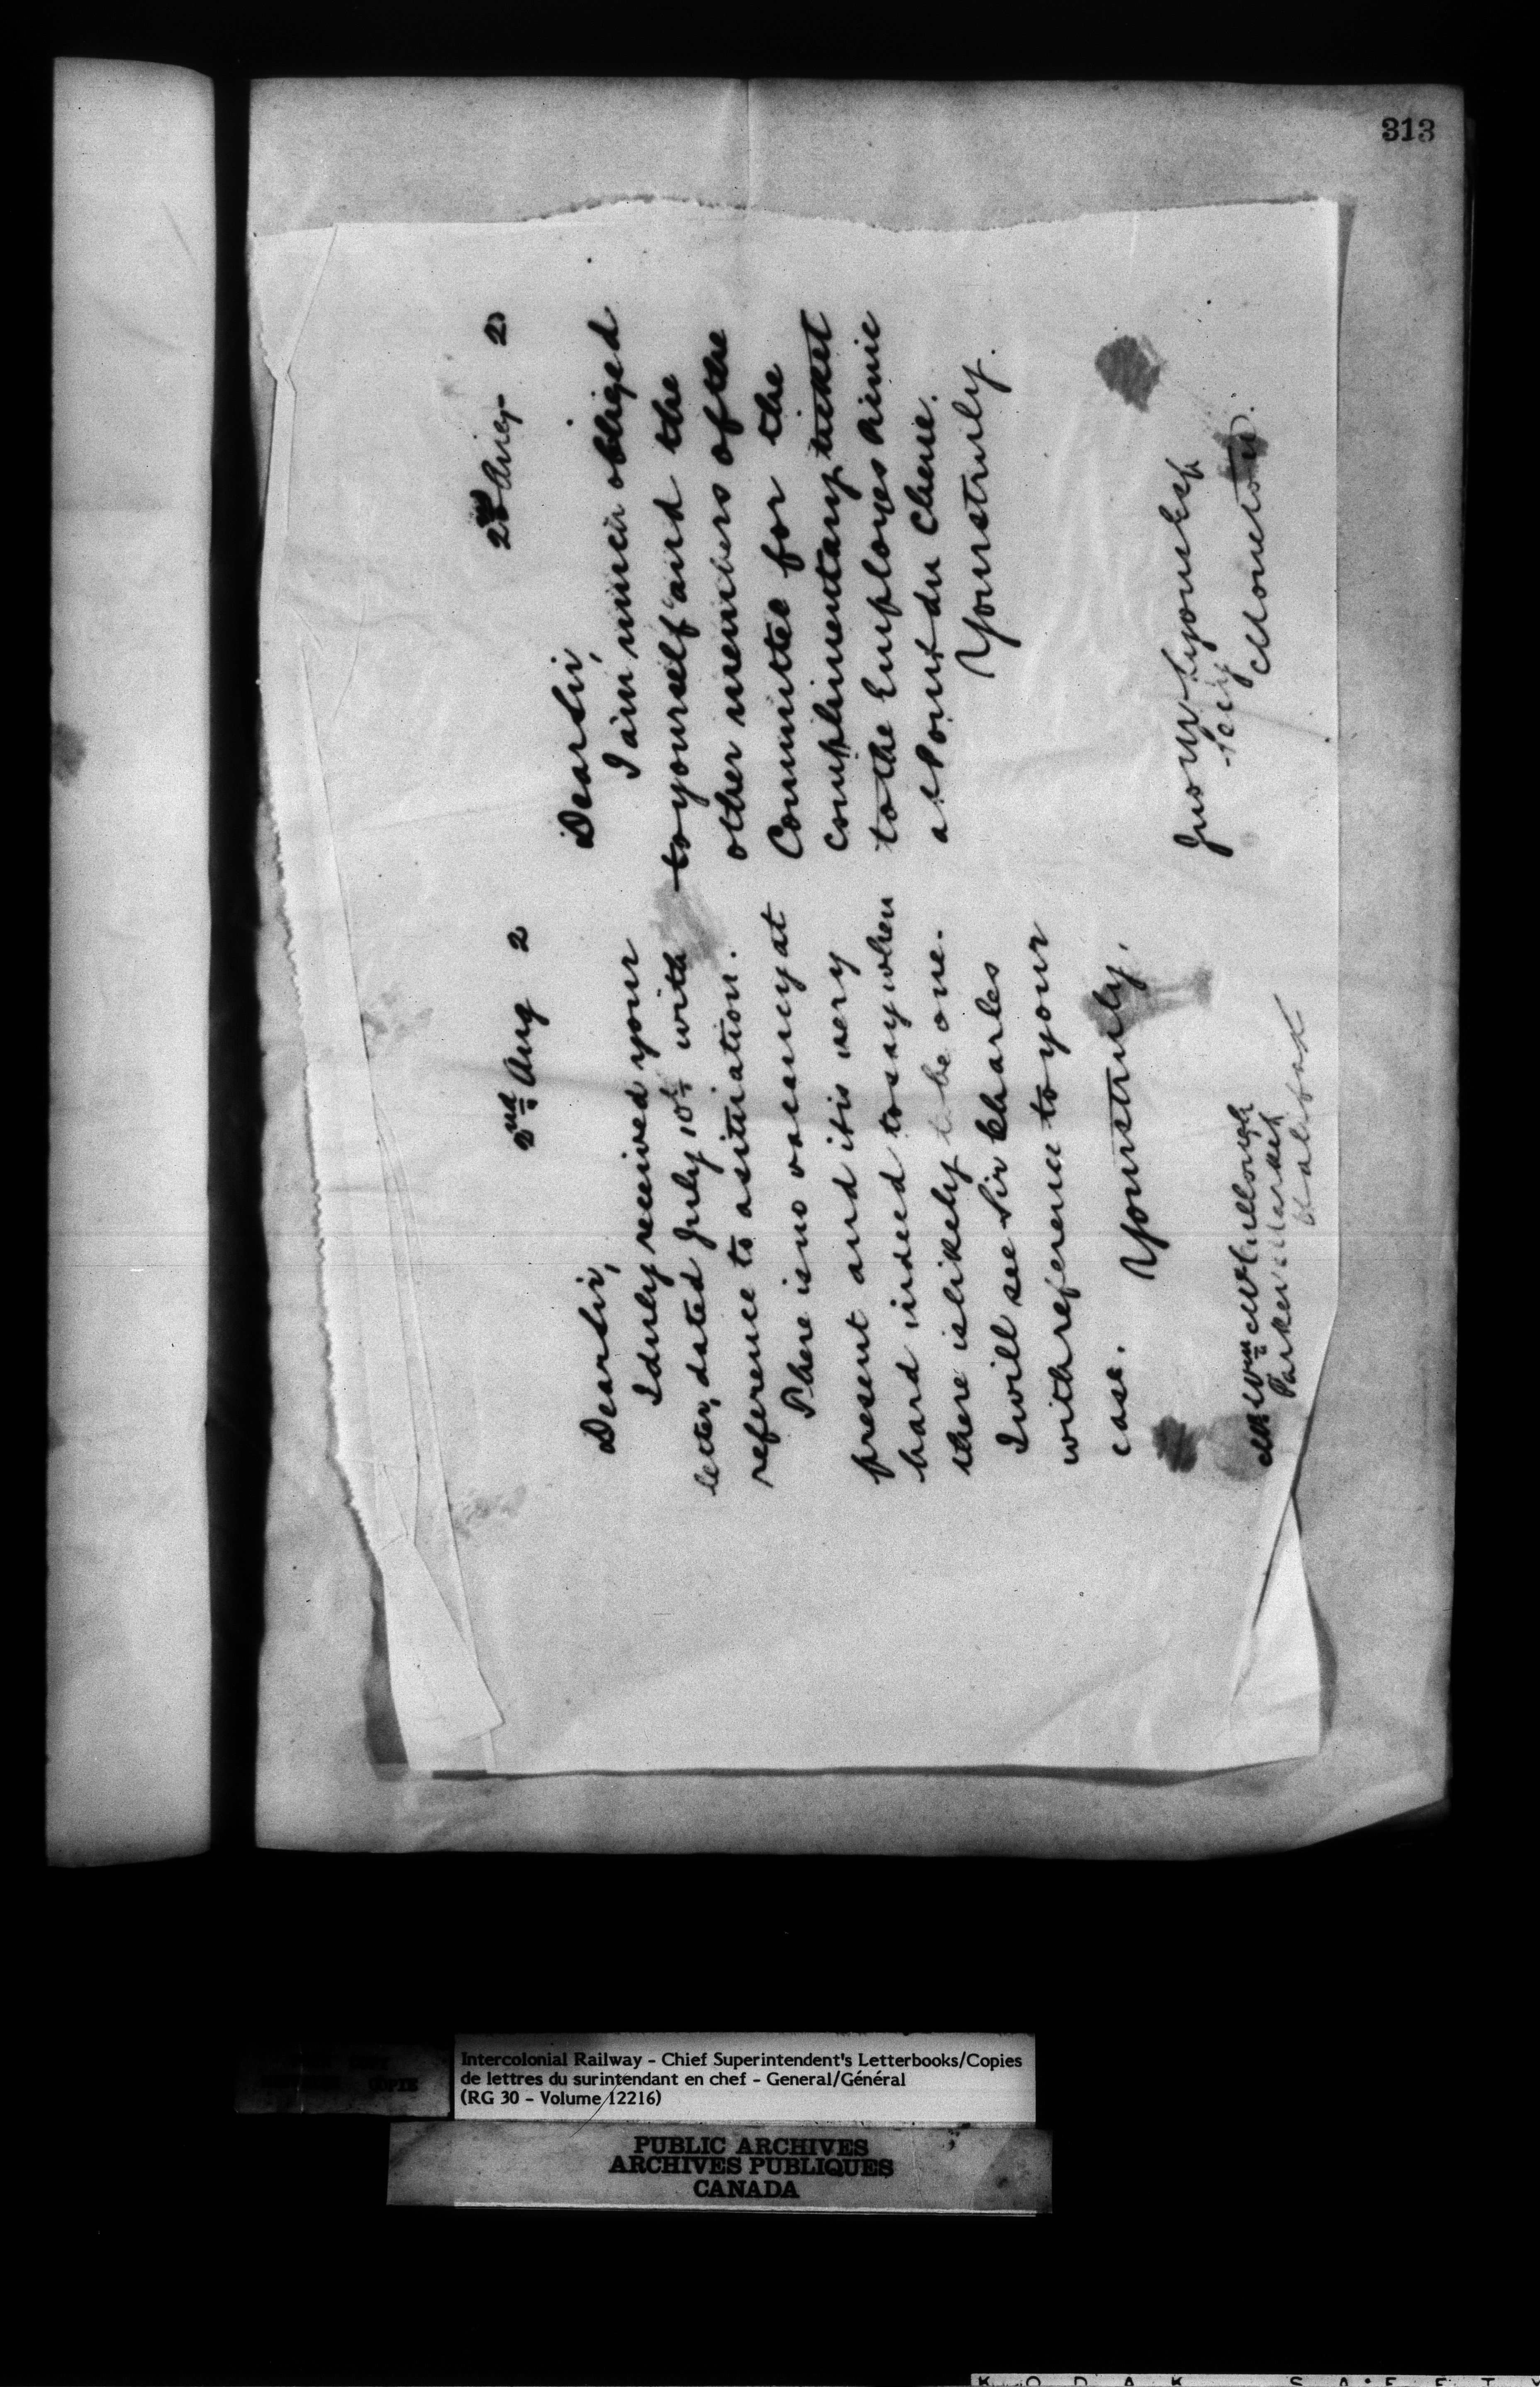 313
2nd Aug 2
Dear Sir,
I duly received your
letter, dated July 10th with
reference to a situation.
There is no vacancy at
present and it is very
hard indeed to say when
there is likely to be one.
I will see Sir Charles
with reference to your
case.
Yours truly,
Mr. Wm McCullough
Parker Market
Halifax
2nd Aug 2
Dear Sir,
I am much obliged
to yourself and the
other members of the
Committee for the
complimentary ticket
to the Employes Picnic
at Point du Chene.
Yours truly.
Lyons Esq
Secy
Moncton.
Intercolonial Railway - Chief Superintendent's Letterbooks/Copies
de lettres du surintendant en chef - General/Général
(RG 30 - Volume 12216)
PUBLIC ARCHIVES
ARCHIVES PUBLIQUES
CANADA